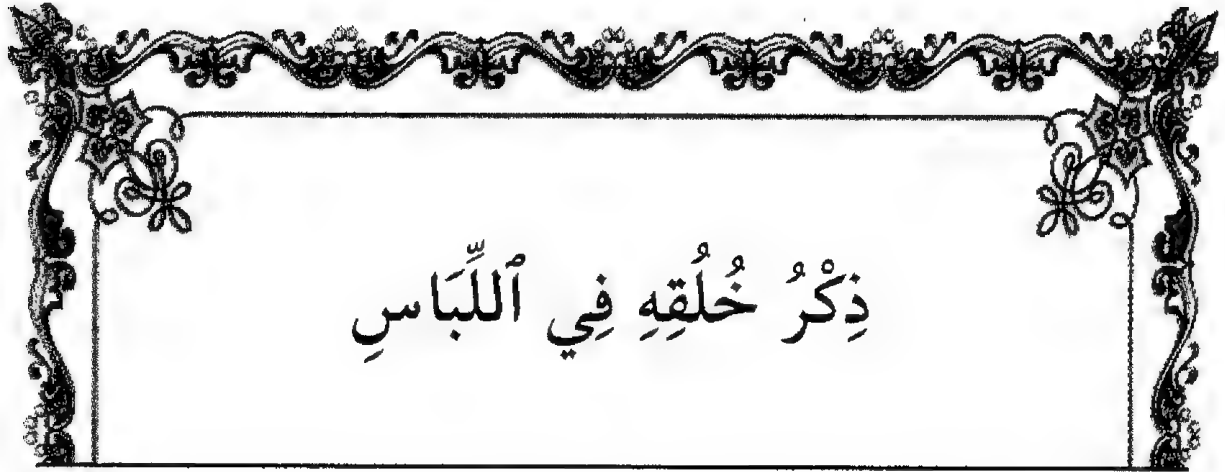 ذِكْرُ خُلُقِهِ فِي ٱللِّبَاسِ